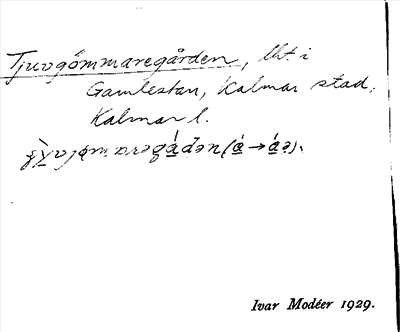 Tjuvgömmaregården, lht. i
Gamlestan, Kalmar stad,
Kalmar l.
Ivar Modéer 1929.